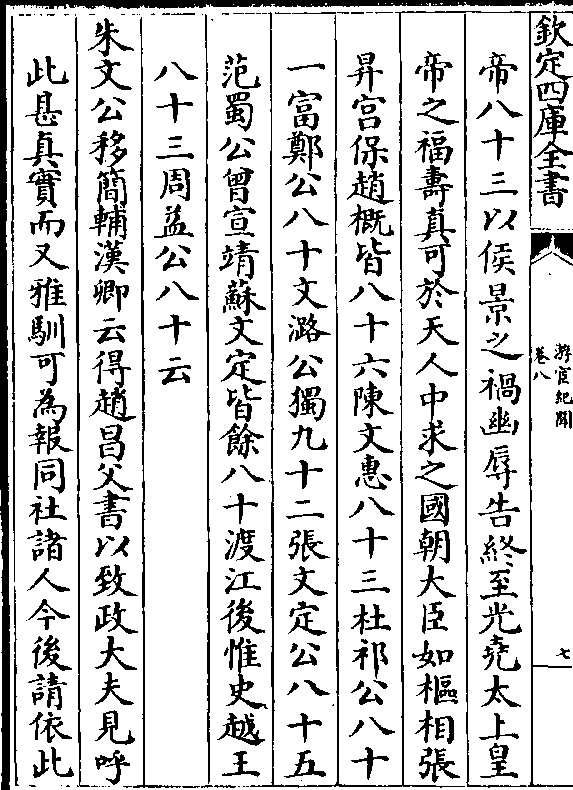 欽定四庫全書
游宦紀聞
卷八
七
帝八十三以侯景之禍幽辱告終至光堯太上皇
帝之福壽真可於天人中求之國朝大臣如樞相張
昇宫保趙概皆八十六陳文惠八十三杜祁公八十
一富鄭公八十文潞公獨九十二張文定公八十五
范蜀公曾宣靖蘇文定皆餘八十渡江後惟史越王
八十三周益公八十云
朱文公移簡輔漢卿云得趙昌父書以致政大夫見呼
此甚真實而又雅馴可為報同社諸人今後請依此